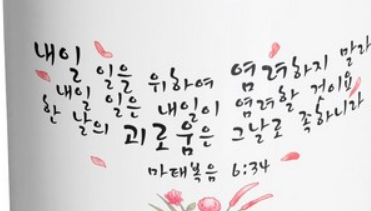 내일 일을 위하여 염려하지 말라
내일 일은 내일이 염려할 것이요
한 날의 괴로움은 그날로 족하니라
마태복음 6:34